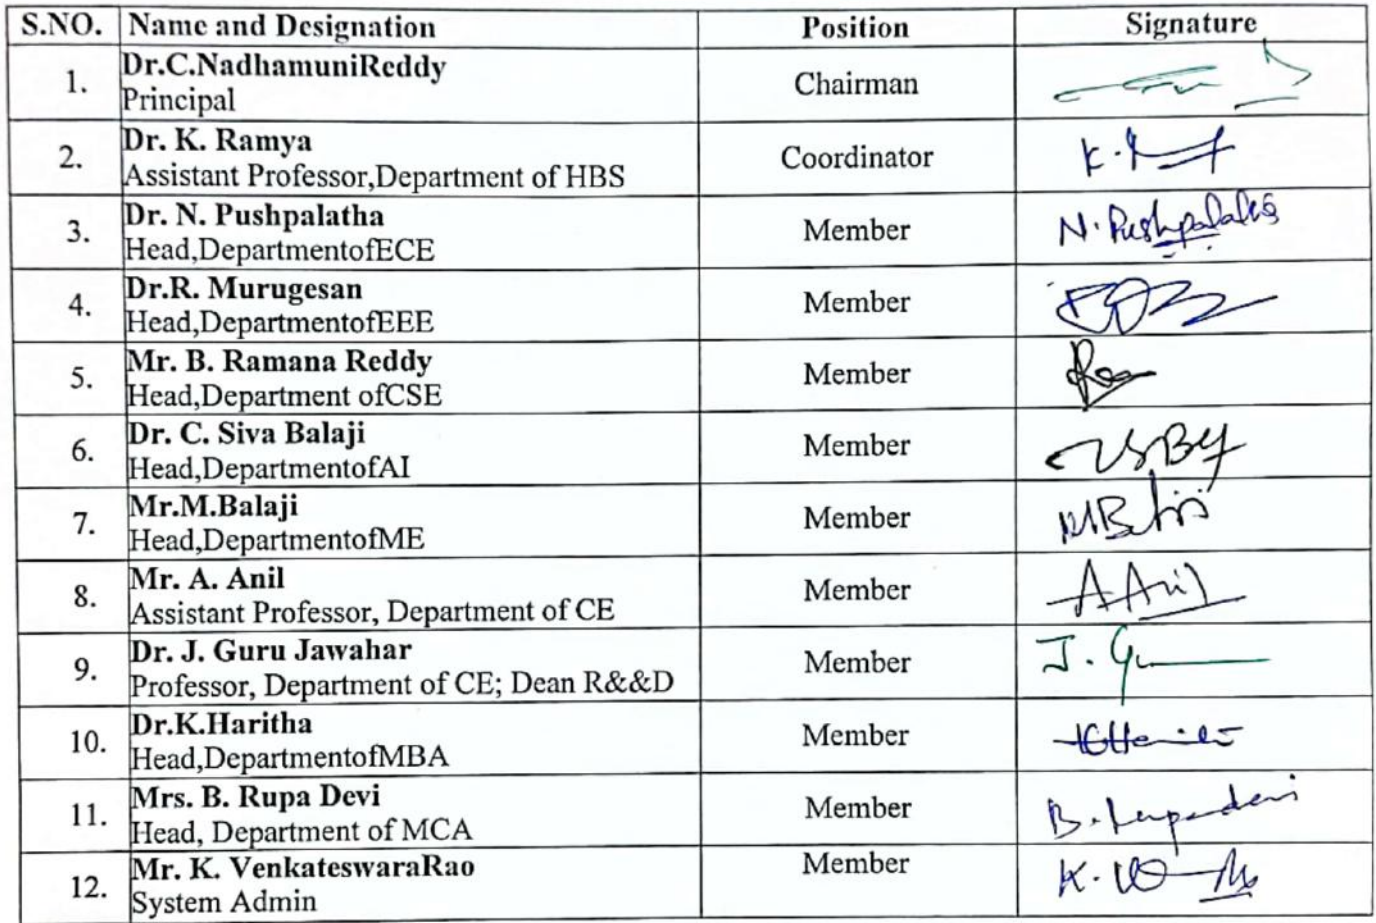 S.NO. Name and Designation Position Signature
1. Dr.C.NadhamuniReddy
Principal Chairman
2. Dr. K. Ramya
Assistant Professor,Department of HBS Coordinator K.
3. Dr. N. Pushpalatha
Head,DepartmentofECE Member N. Pushpalatha
4. Dr.R. Murugesan
Head,DepartmentofEEE Member
5. Mr. B. Ramana Reddy
Head,Department ofCSE Member
6. Dr. C. Siva Balaji
Head,DepartmentofAI Member
7. Mr.M.Balaji
Head,DepartmentofME Member
8. Mr. A. Anil
Assistant Professor, Department of CE Member A Anil
9. Dr. J. Guru Jawahar
Professor, Department of CE; Dean R&&D Member J. Gu
10. Dr.K.Haritha
Head,DepartmentofMBA Member
11. Mrs. B. Rupa Devi
Head, Department of MCA Member B. Rupa devi
12. Mr. K. VenkateswaraRao
System Admin Member K.